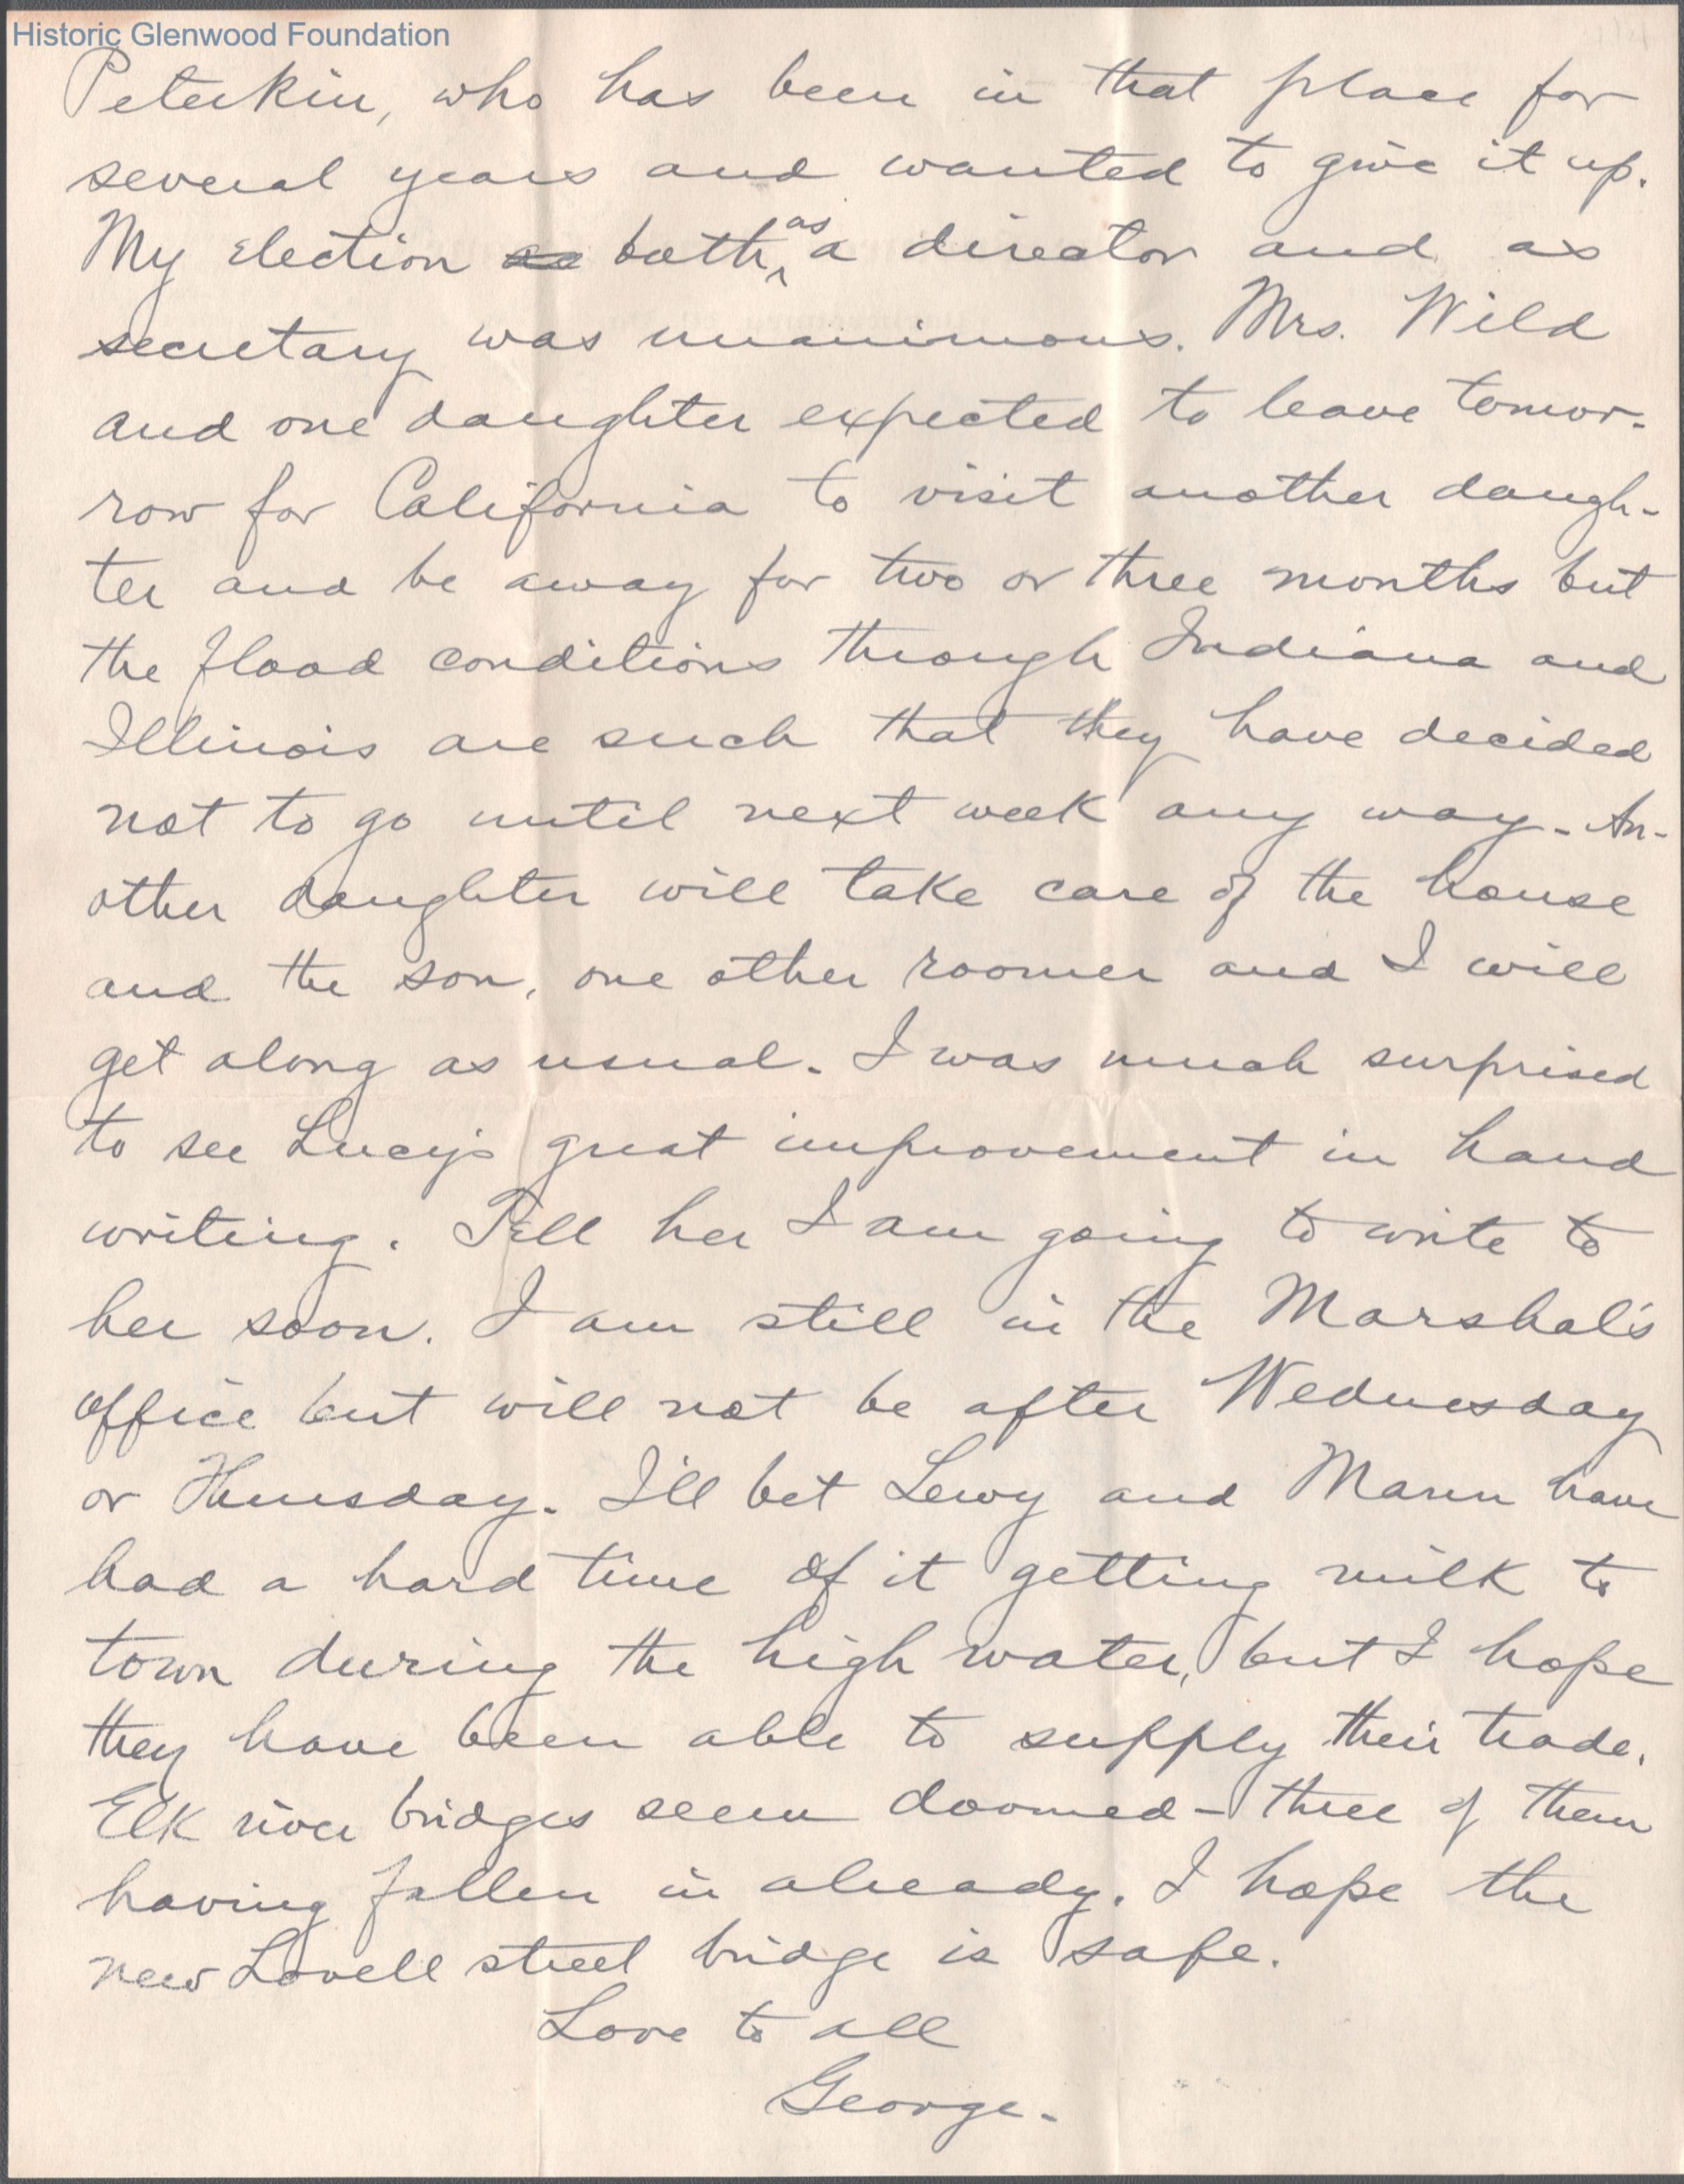 Historic Glenwood Foundation
Peterkin, who has been in that place for
several years and wanted to give it up.
My election as both as a director and as
secretary was unanimous. Mrs. Wild
and one daughter expected to leave tomor-
row for California to visit another daugh-
ter and be away for two or three months but
the flood conditions through Indiana and
Illinois are such that they have decided
not to go until next week any way - An-
other daughter will take care of the house
and the son, one other roomer and I will
get along as usual. I was much surprised
to see Lucy's great improvement in hand
writing. Tell her I am going to write to
her soon. I am still in the Marshal's
office but will not be after Wednesday
or Thursday. I'll bet Lewy and Mann have
had a hard time of it getting milk to
town during the high water, but I hope
they have been able to supply their trade.
Elk river bridges seem doomed - three of them
having fallen in already. I hope the
new Lovell street bridge is safe.
Love to all
George.